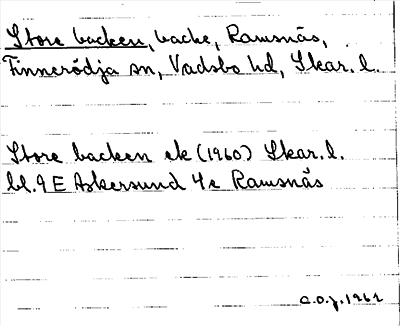 Store backen, backe, Ramsnäs,
Finnerödja sn, Vadsbo hd, Skar. l.
Store backen ek (1960) Skar. l.
bl. 9 E Askersund 4 e Ramsnäs
C.O.J. 1961